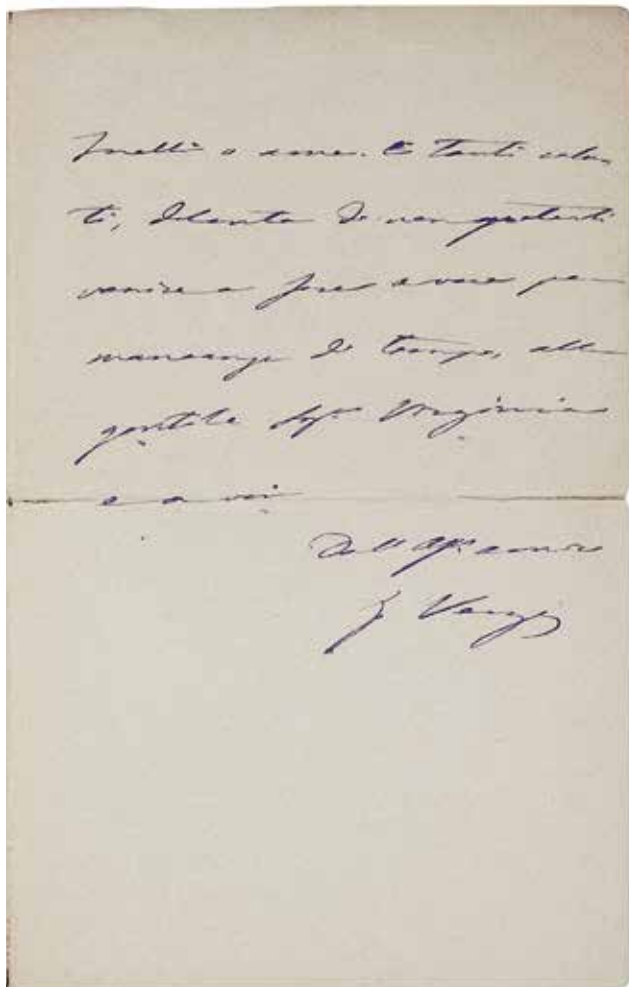 o a me. E tanti salu-
ti, dolente di non poterli
venire a fare a voce per
mancanza di tempo, alla
gentile Sigra Virginia
e a voi
Dall'Affmo amico
G Verga